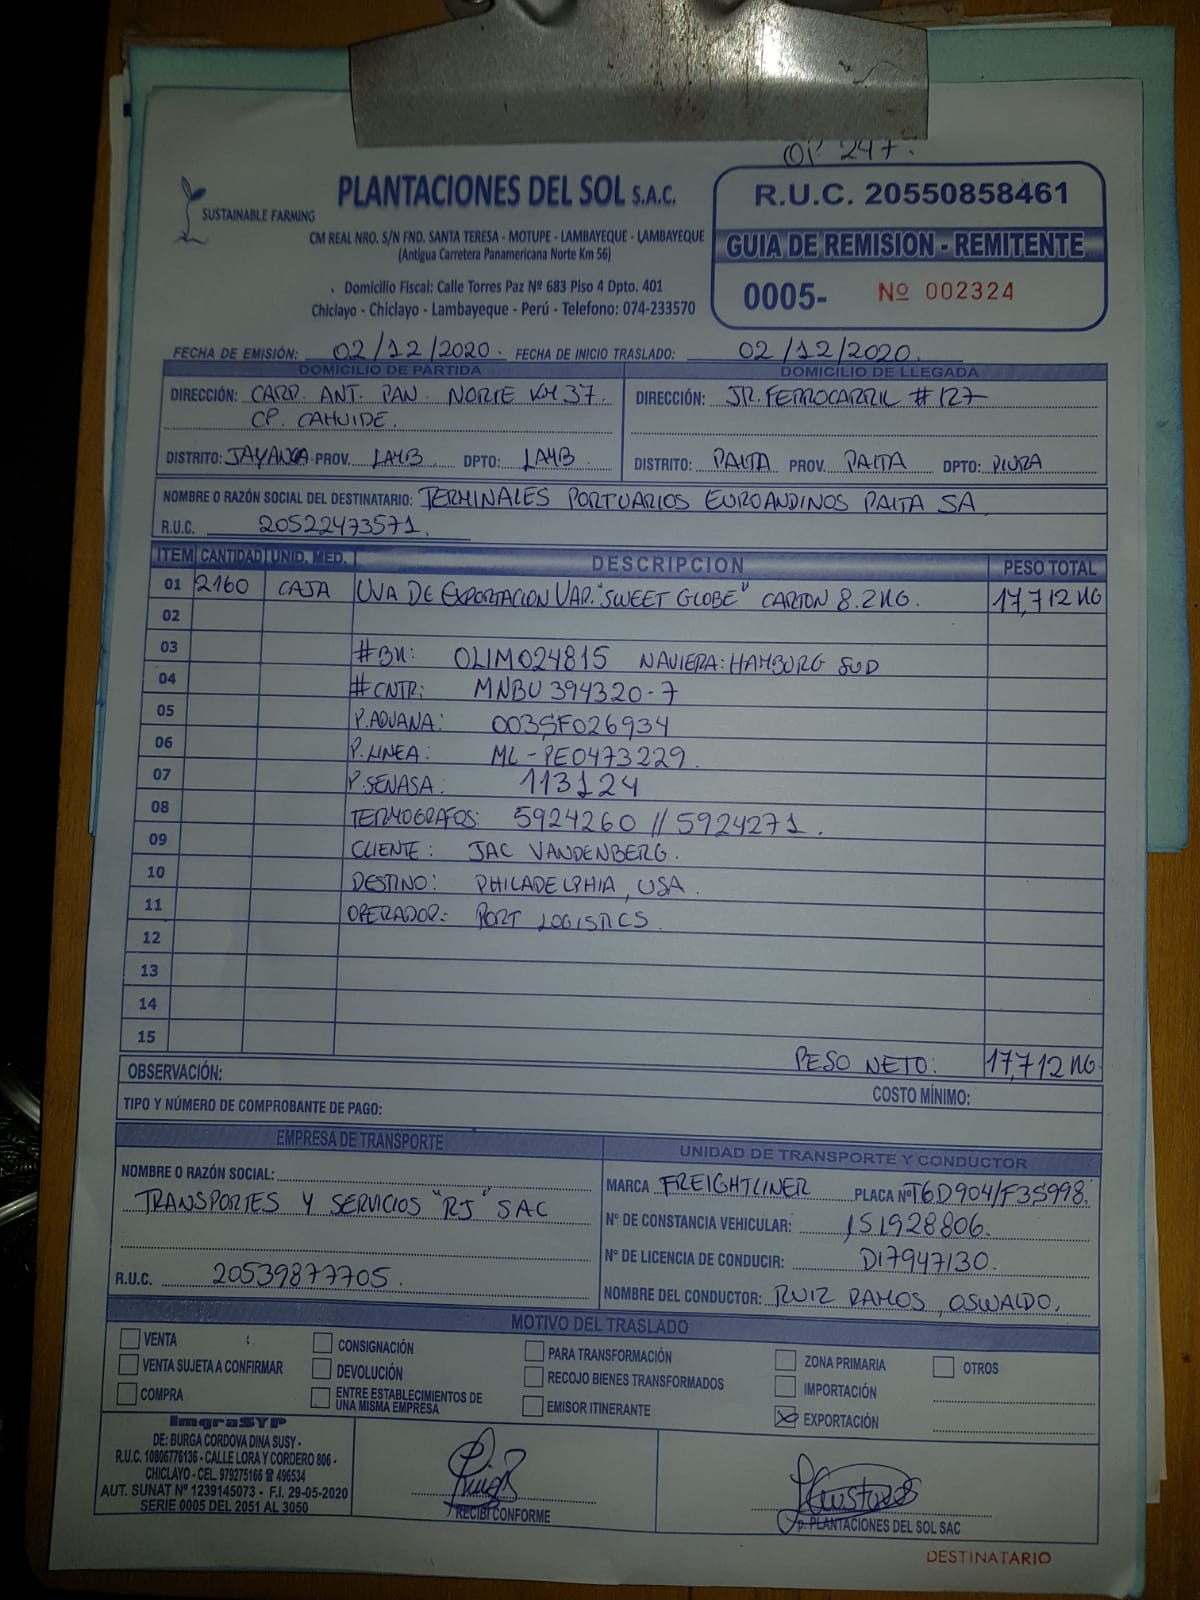 OP. 247.
SUSTAINABLE FARMING
PLANTACIONES DEL SOL S.A.C.
CM REAL NRO. S/N FND. SANTA TERESA - MOTUPE - LAMBAYEQUE - LAMBAYEQUE
(Antigua Carretera Panamericana Norte Km 56)
Domicilio Fiscal: Calle Torres Paz Nº 683 Piso 4 Dpto. 401
Chiclayo - Chiclayo - Lambayeque - Perú - Telefono: 074-233570
R.U.C. 20550858461
GUIA DE REMISION - REMITENTE
0005- Nº 002324
FECHA DE EMISIÓN: 02/12/2020. FECHA DE INICIO TRASLADO: 02/12/2020.
DOMICILIO DE PARTIDA
DIRECCIÓN: CARR. ANT. PAN. NORTE KM 37.
CP. CAHUIDE.
DISTRITO: JAYANCA PROV. LAMB. DPTO: LAMB.
DOMICILIO DE LLEGADA
DIRECCIÓN: JR. FERROCARRIL #127
DISTRITO: PAITA PROV. PAITA DPTO: PIURA
NOMBRE O RAZÓN SOCIAL DEL DESTINATARIO: TERMINALES PORTUARIOS EUROANDINOS PAITA SA
R.U.C. 20522473571.
ITEM CANTIDAD UNID. MED. DESCRIPCION PESO TOTAL
01 2160 CAJA UVA DE EXPORTACION VAR. "SWEET GLOBE" CARTON 8.2KG. 17,712 KG
02
03 #BK: OLIM024815 NAVIERA: HAMBURG SUD
04 #CNTR: MNBU 394320-7
05 P.ADUANA: 003SF026934
06 P.LINEA: ML-PE0473229.
07 P.SENASA: 113124
08 TERMOGRAFOS: 5924260 // 5924271.
09 CLIENTE: JAC VANDENBERG.
10 DESTINO: PHILADELPHIA, USA.
11 OPERADOR: PORT LOGISTICS.
12
13
14
15
PESO NETO: 17,712 KG
OBSERVACIÓN:
COSTO MÍNIMO:
TIPO Y NÚMERO DE COMPROBANTE DE PAGO:
EMPRESA DE TRANSPORTE
NOMBRE O RAZÓN SOCIAL:
TRANSPORTES Y SERVICIOS "RJ" SAC
R.U.C. 20539877705.
UNIDAD DE TRANSPORTE Y CONDUCTOR
MARCA FREIGHTLINER PLACA Nº T6D904/F3S998.
Nº DE CONSTANCIA VEHICULAR: 151928806.
Nº DE LICENCIA DE CONDUCIR: D17947130.
NOMBRE DEL CONDUCTOR: RUIZ RAMOS, OSWALDO.
MOTIVO DEL TRASLADO
VENTA
VENTA SUJETA A CONFIRMAR
COMPRA
CONSIGNACIÓN
DEVOLUCIÓN
ENTRE ESTABLECIMIENTOS DE
UNA MISMA EMPRESA
PARA TRANSFORMACIÓN
RECOJO BIENES TRANSFORMADOS
EMISOR ITINERANTE
ZONA PRIMARIA
IMPORTACIÓN
X EXPORTACIÓN
OTROS
ImgraSYP
DE: BURGA CORDOVA DINA SUSY -
R.U.C. 10806776136 - CALLE LORA Y CORDERO 806 -
CHICLAYO - CEL. 979275166 ☎ 496534
AUT. SUNAT Nº 1239145073 - F.I. 29-05-2020
SERIE 0005 DEL 2051 AL 3050
RECIBI CONFORME
p. PLANTACIONES DEL SOL SAC
DESTINATARIO